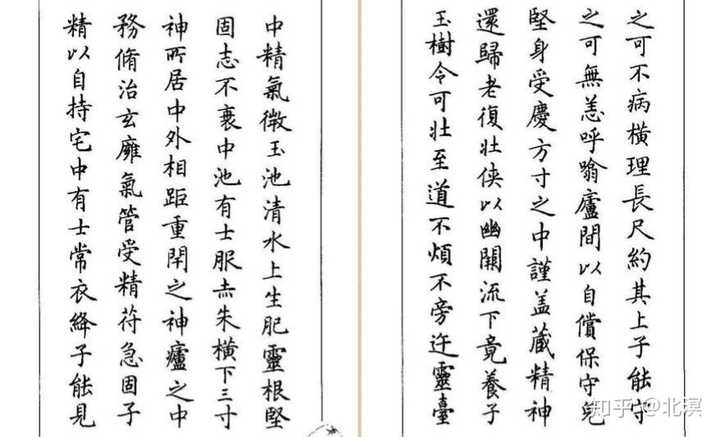 之可不病橫理長尺約其上子能守
之可無恙呼噏廬間以自償保守完
堅身受慶方寸之中謹盖藏精神
還歸老復壯俠以幽闕流下竟養子
玉樹令可壯至道不煩不旁迕靈臺
中精氣微玉池清水上生肥靈根堅
固志不衰中池有士服赤朱橫下三寸
神所居中外相距重閇之神廬之中
務脩治玄廱氣管受精苻急固子
精以自持宅中有士常衣絳子能見
知乎 @北溟